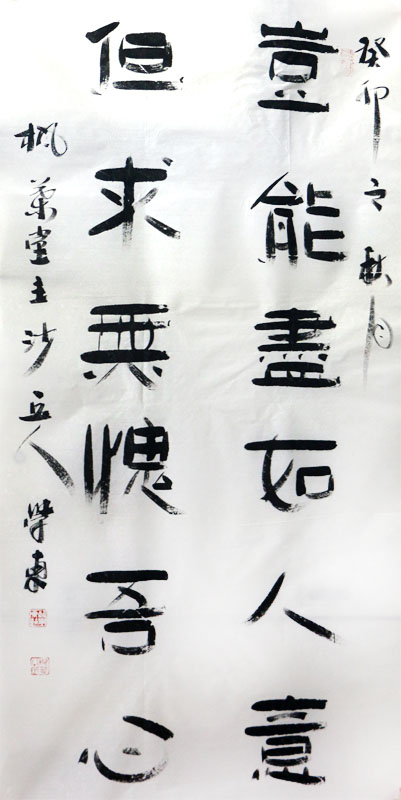 癸卯之秋月
豈能盡如人意
但求無愧吾心
楓蘭堂主沙丘人學東